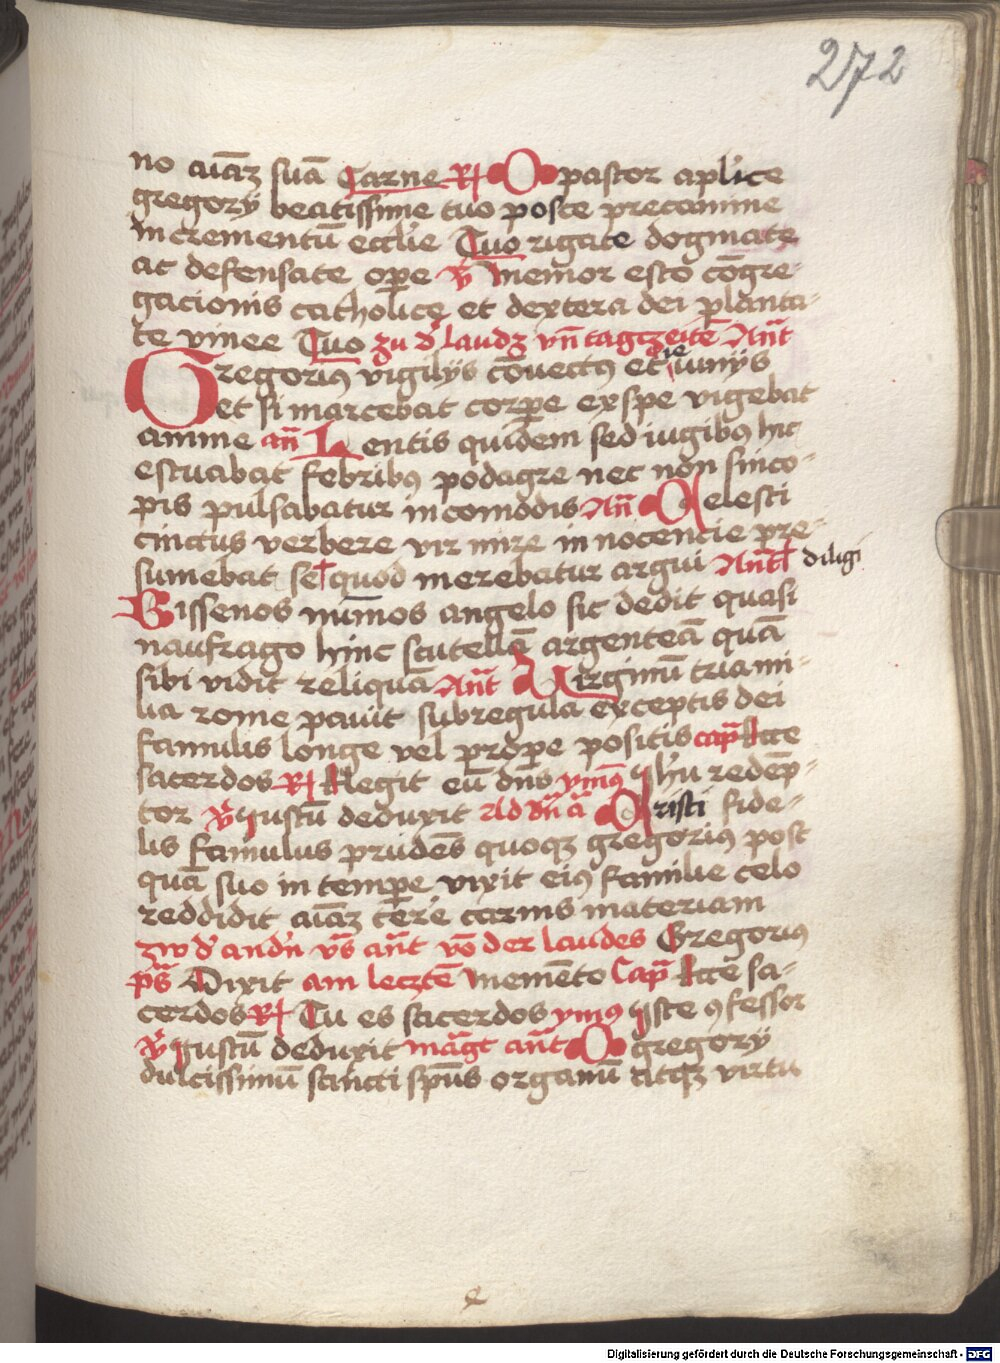 272
no aīaz suā Carne R O pastor aplice
gregory beatissime tuo posce precamine
in crementū ecclie Quo rigate dogmate
ac defensate ope V Memor esto cōgre-
gacionis catholice et dextera dei planta-
te vinee Quo zu d laudz vn tagczeitē Ant
Gregorius vigilys cōuectus et ie iunys
et si marcebat corpe ex spe vigebat
amme an Lentis quidem sed iugibus hic
estuabat febribus podagre nec non sinco-
pis pulsabatur in comodis An Celesti
cinctus verbere vir mire in nocencie pre-
sumebat se quod merebatur argui Ant diligi
Bissenos nūmos angelo sic dedit quasi
naufrago hinc scutellā argenteā quā
sibi vidit reliquā Ant Virginū tria mi-
lia rome pauit sub regula exceptis dei
famulis longe vel prope positis cap Ecce
sacerdos R Elegit eū dns ymus ihu redēp-
tor V iustū deduxit Ad bn a Cristi fide-
lis famulus prudēs quoqz gregorius post
quā suo in tempe vixit eius familie celo
reddidit aīaz tere carnis materiam
zw d andn vs ant vō der laudes Gregorius
ps Dixit am lecztē Memēto Cap Ecce sa-
cerdos R Tu es sacerdos ymus iste 9fessor
V iustū deduxit magt ant O gregory
dulcissimū sancti spūs organū atqz virtu
Digitalisierung gefördert durch die Deutsche Forschungsgemeinschaft - DFG